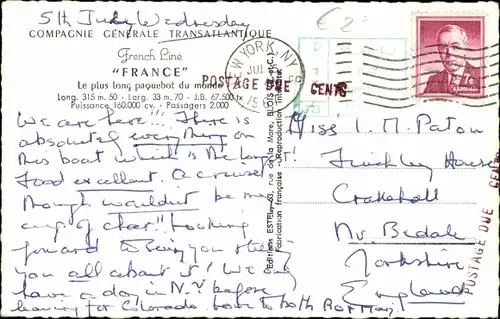 5th July Wednesday
COMPAGNIE GÉNÉRALE TRANSATLANTIQUE
French Line
"FRANCE"
Le plus long paquebot du monde
Long. 315 m. 50 - Larg. 33 m. 70 - J.B. 67.500 tx
Puissance 160.000 cv. - Passagers 2.000
We are here!!! There is
absolutely everything on
this boat which is the longest!
Food excellent. A cruise
though wouldn't be my
cup of char!! Looking
forward to seeing you & tell
you all about it! We only
have a day in N.Y before
leaving for Colorado love to both
Editions ESTEL, rue de la Mare, BLOIS
Fabrication française - Reproduction interdite
€ 2
YORK, N.Y.
JUL
POSTAGE DUE CENTS
Miss M. Paton
Finchley House
Crakehall
Nr. Bedale
Yorkshire
England
POSTAGE DUE CENTS